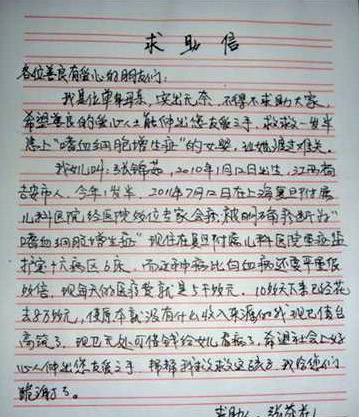 求助信
各位善良有爱心的朋友们：
我是位单身母亲，实出无奈，不得不求助大家，
希望善良的爱心人士能伸出您友爱之手，救救一岁半
患上“嗜血细胞增生症”的女婴，让她渡过难关。
我女儿叫：张锦茹，2010年1月12日出生，江西省
吉安市人，今年1岁半。2011年7月12日在上海复旦附属
儿科医院，经医院数位专家会诊，被明确诊断为“
嗜血细胞增生症”现住在复旦附属儿科医院重症监
护室十六病区6床，而这种病比白血病还要严重很
多倍，现每天的医疗费就是5千块元，10多天下来已经花
去8万块元，使原本就没有什么收入来源的我现已债台
高筑了，现已无处可借钱给女儿看病了，希望社会上好
心人伸出您友爱之手，帮帮我救救这孩子，我给你们
跪谢了。
求助人：张